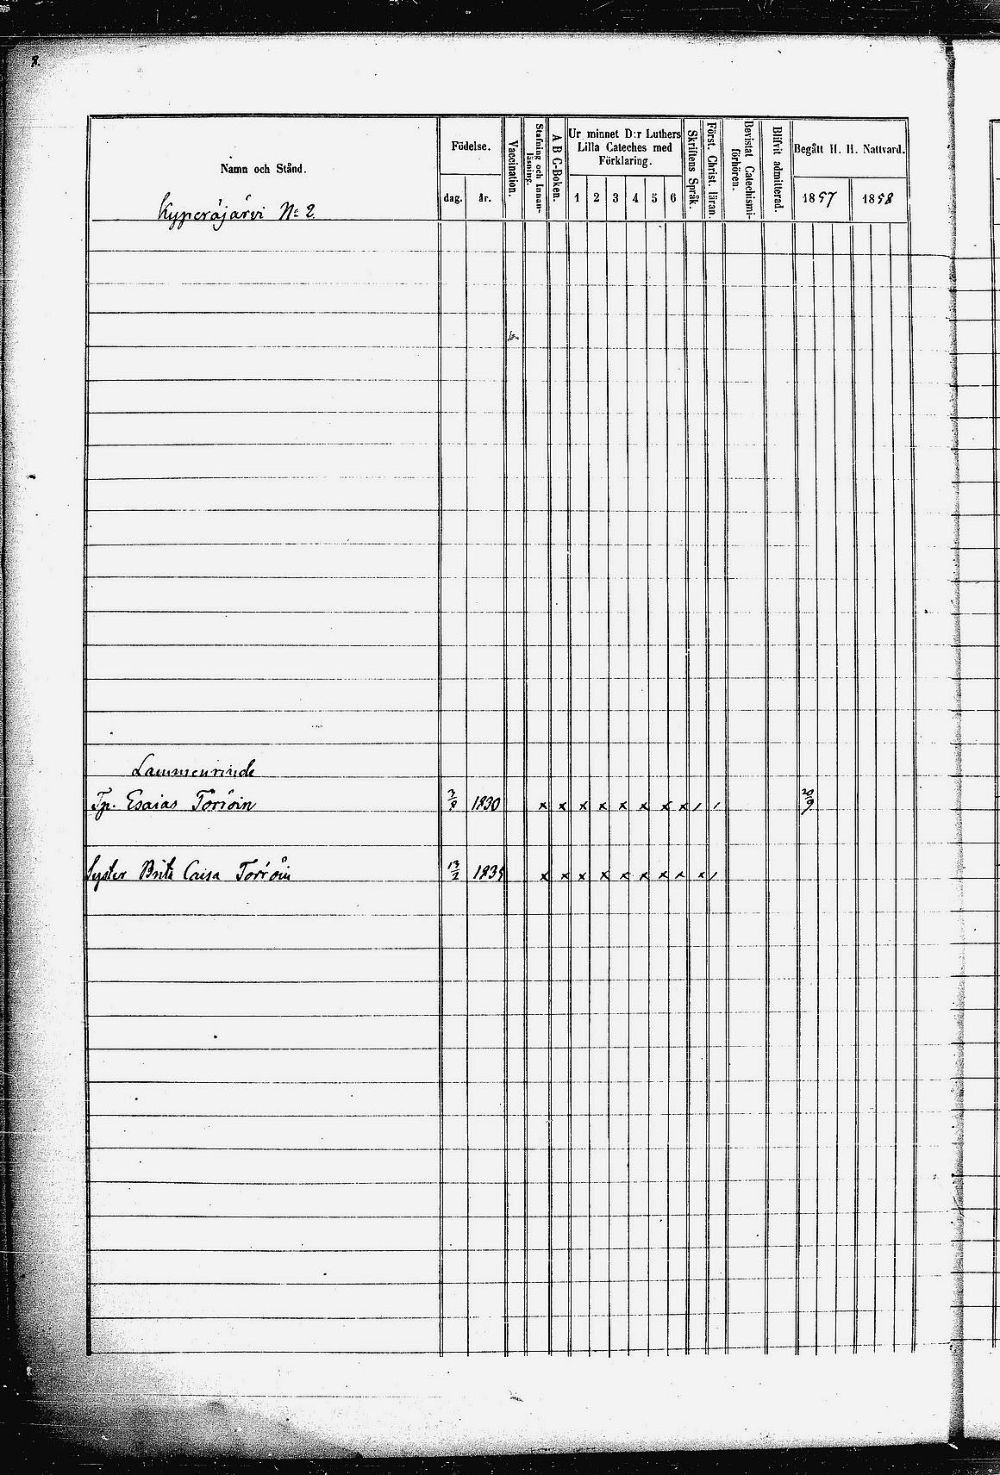 8.
Namn och Stånd.
Kyperäjärvi No 2
Födelse.
dag.
år.
Vaccination.
Stafning och Innan-
läsning.
A B C-Boken.
Ur minnet D:r Luthers
Lilla Cateches med
Förklaring.
1 2 3 4 5 6
Skriftens Språk.
Först. Christ. läran.
Bevistat Catechismi-
förhören.
Blifvit admitterad.
Begått H. H. Nattvard.
1857 1858
Tp. Esaias 3/8 1830 x x x x x x x x x / / 20/9
Syster Brita Caisa 13/2 x x x x x x x x x /